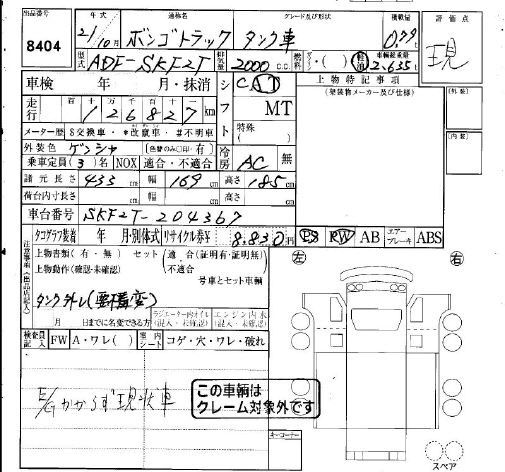 出品番号 8404
年式 21/10月
通称名 ボンゴトラック
グレード及び形状 タンク車
積載量
評価点 現
型式 ADF-SKF2T
排気量 2000 C.C.
燃料 軽油
車輌総重量 2,635
車検 年 月・抹消
シフト CAT MT 特殊( )
上物特記事項
(架装物メーカー及び仕様)
(外装)
(内装)
走行 百 十 万 千 百 十 126827km
メーター歴 $交換車・*改竄車・#不明車
外装色 ゲンシャ (色替のみ○印・有)
冷房 AC 無
乗車定員(3)名 NOX 適合・不適合
諸元長さ 433cm 幅 169cm 高さ 185cm
荷台内寸長さ cm 幅 cm 高さ cm
車台番号 SKF2T-204367
タコグラフ装着 年 月・別体式 リサイクル券¥ 8,830円
PS PW AB エアーブレーキ ABS
注意事項(出品店記入)
上物書類(有・無) セット(適合(証明有・証明無)
上物動作(確認・未確認) 不適合
号車とセット車輌
左 右
タンク外し(要構変)
月 日までに名変できる方
ラジエーター内オイル(混入・未確認)
エンジン内水(混入・未確認)
検査員記入 FW A・ワレ( ) 室内シート コゲ・穴・ワレ・破れ
E/Gかからず現状車
この車輌はクレーム対象外です
キーコーナー
スペア